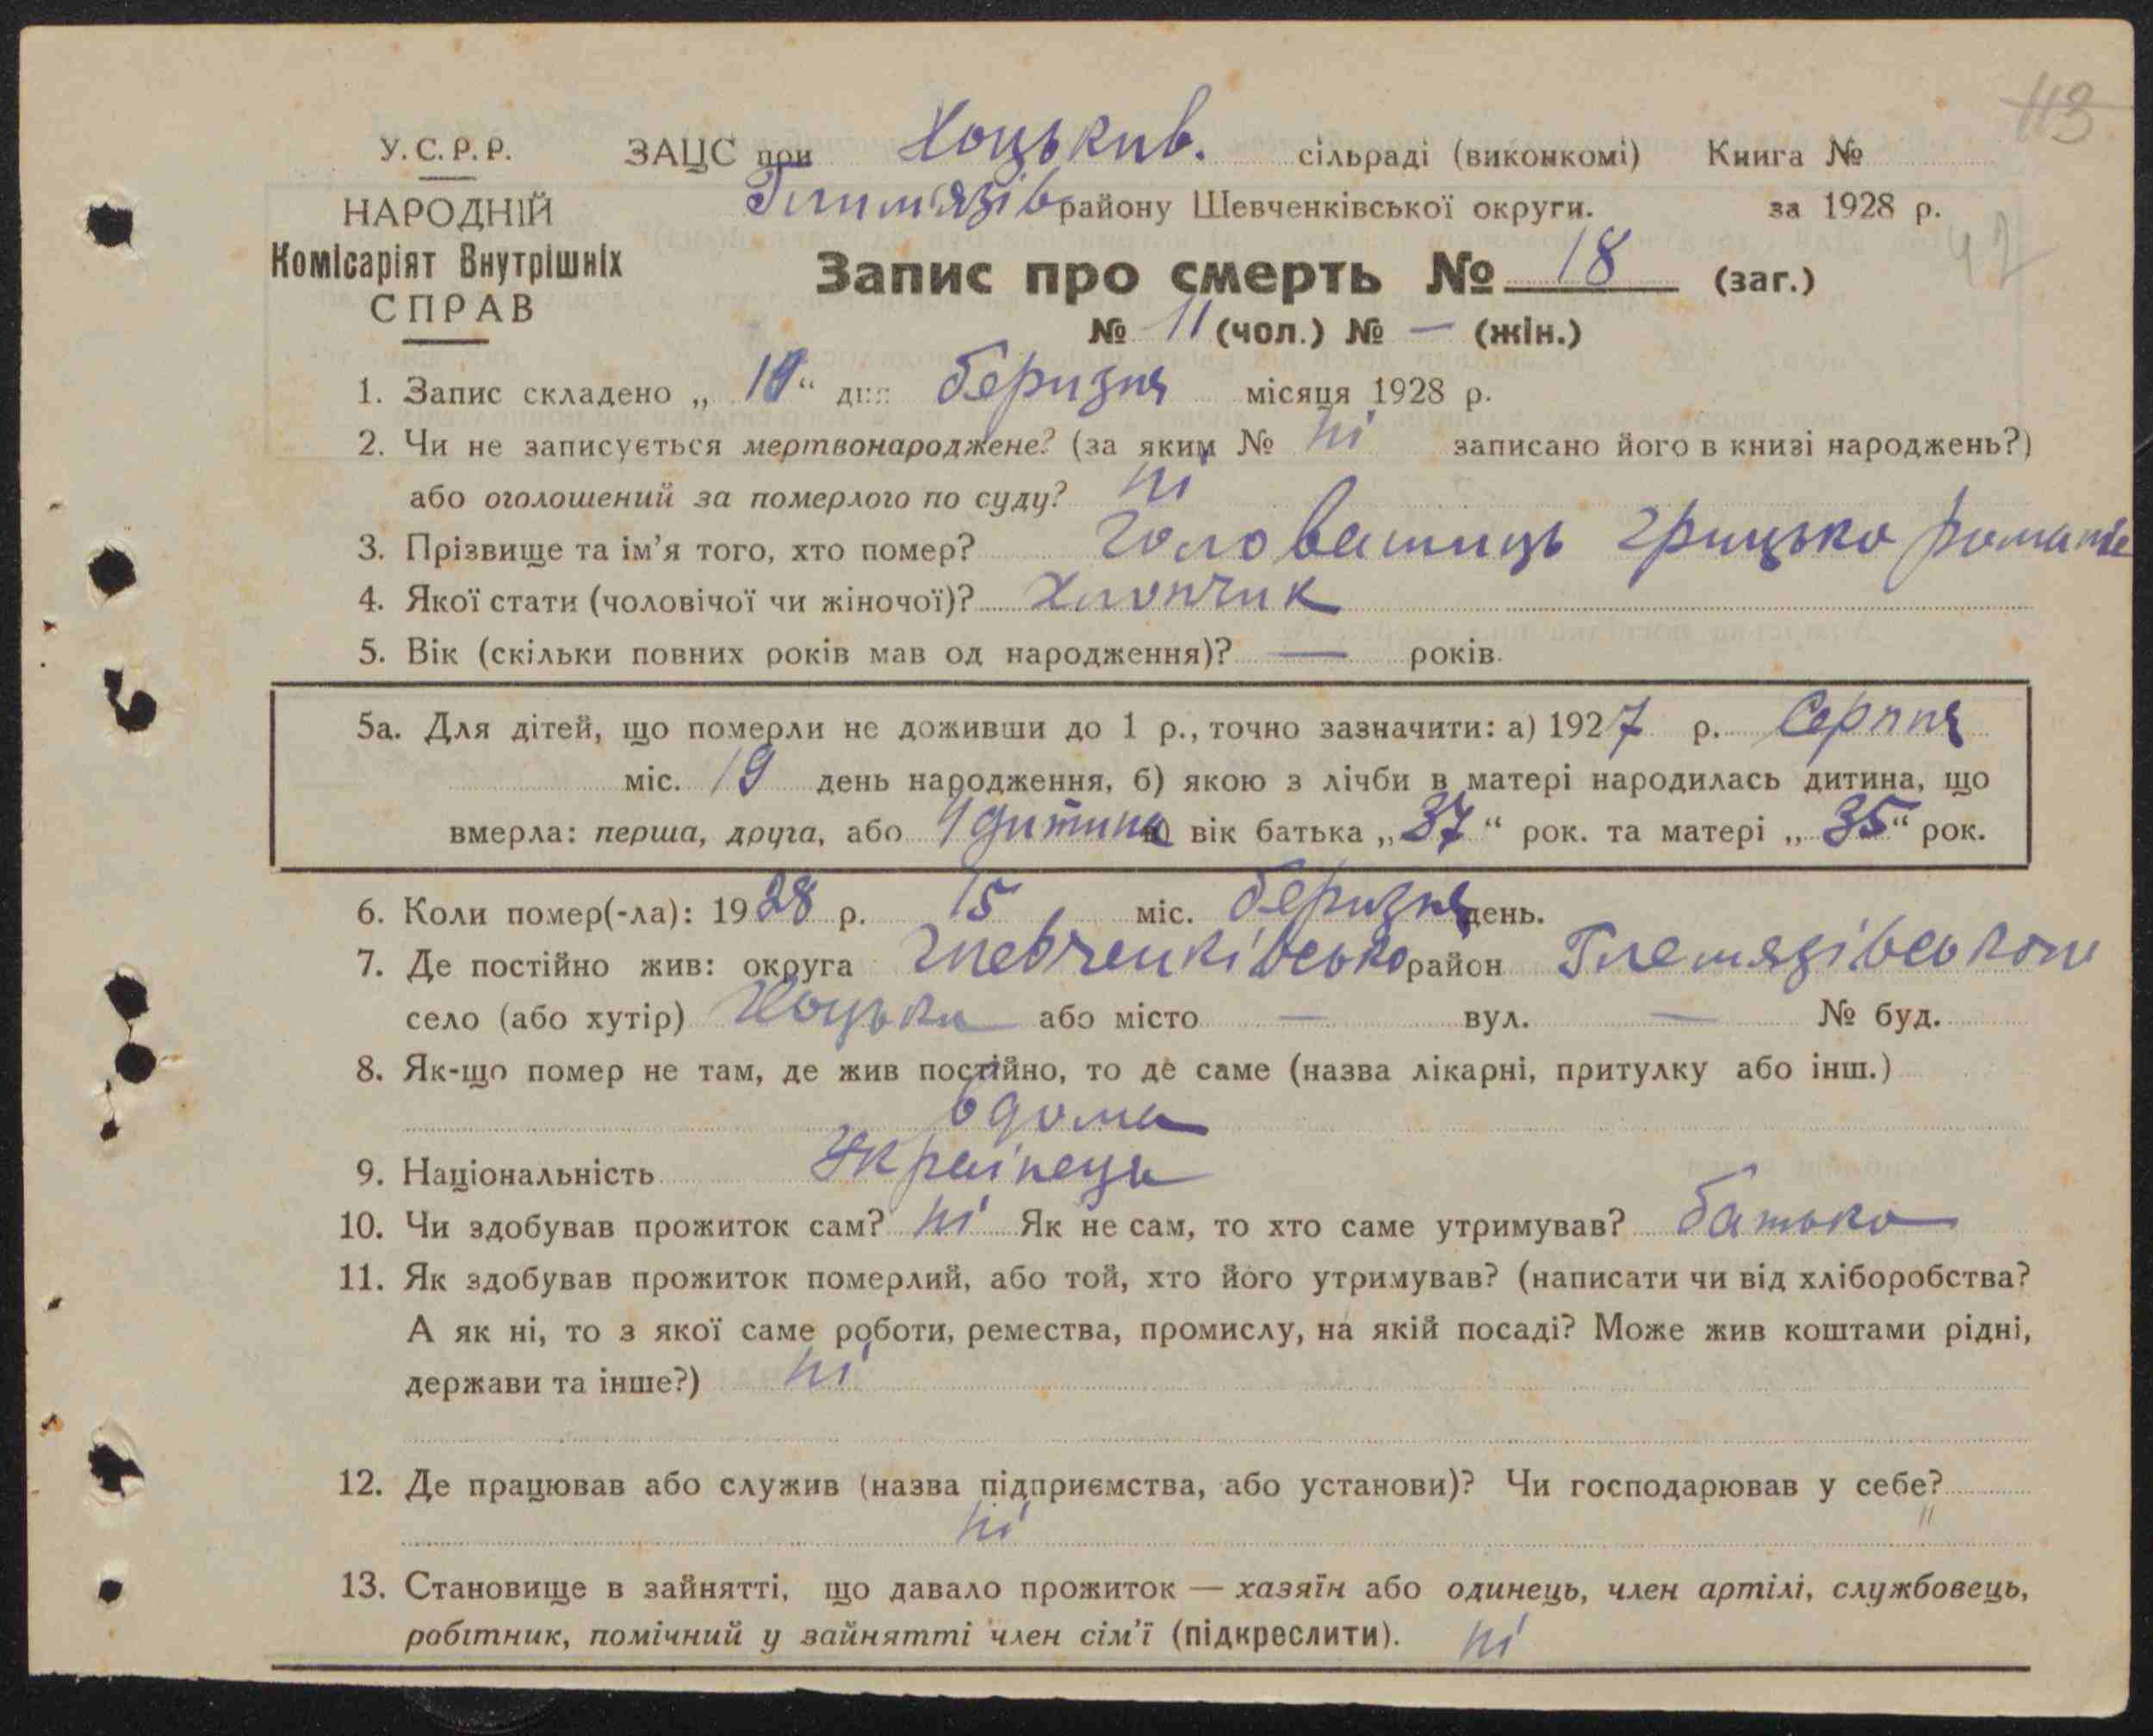 113
У.С.Р.Р. ЗАЦС при Хоцьків. сільраді (виконкомі) Книга №
НАРОДНІЙ Гелмязів району Шевченківської округи. за 1928 р.
42
Комісаріят Внутрішніх
СПРАВ
Запис про смерть № 18 (заг.)
№ 11 (чол.) № — (жін.)
1. Запис складено „ “ дня беризня місяця 1928 р.
2. Чи не записується мертвонароджене? (за яким № ні записано його в книзі народжень?)
або оголошений за померлого по суду? ні
3. Прізвище та ім’я того, хто помер? Головатиць Грицько
4. Якої стати (чоловічої чи жіночої)? Хлопчик
5. Вік (скільки повних років мав од народження)? — років.
5а. Для дітей, що померли не доживши до 1 р., точно зазначити: а) 1927 р. Серпня
міс. 19 день народження, б) якою з лічби в матері народилась дитина, що
вмерла: перша, друга, або 4 дитина вік батька „37“ рок. та матері „35“ рок.
6. Коли помер(-ла): 1928 р. 15 міс. беризня день.
7. Де постійно жив: округа Шевченківсько район
село (або хутір) Хоцьки або місто — вул. — № буд.
8. Як-що помер не там, де жив постійно, то де саме (назва лікарні, притулку або інш.)
вдома
9. Національність Українець
10. Чи здобував прожиток сам? ні Як не сам, то хто саме утримував? батько
11. Як здобував прожиток померлий, або той, хто його утримував? (написати чи від хліборобства?
А як ні, то з якої саме роботи, ремества, промислу, на якій посаді? Може жив коштами рідні,
держави та інше?) ні
12. Де працював або служив (назва підприємства, або установи)? Чи господарював у себе?
ні "
13. Становище в зайнятті, що давало прожиток — хазяїн або одинець, член артілі, службовець,
робітник, помічний у зайнятті член сім’ї (підкреслити). ні